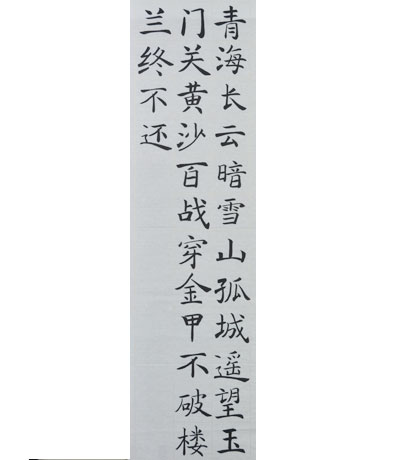 青海长云暗雪山孤城遥望玉
门关黄沙百战穿金甲不破楼
兰终不还